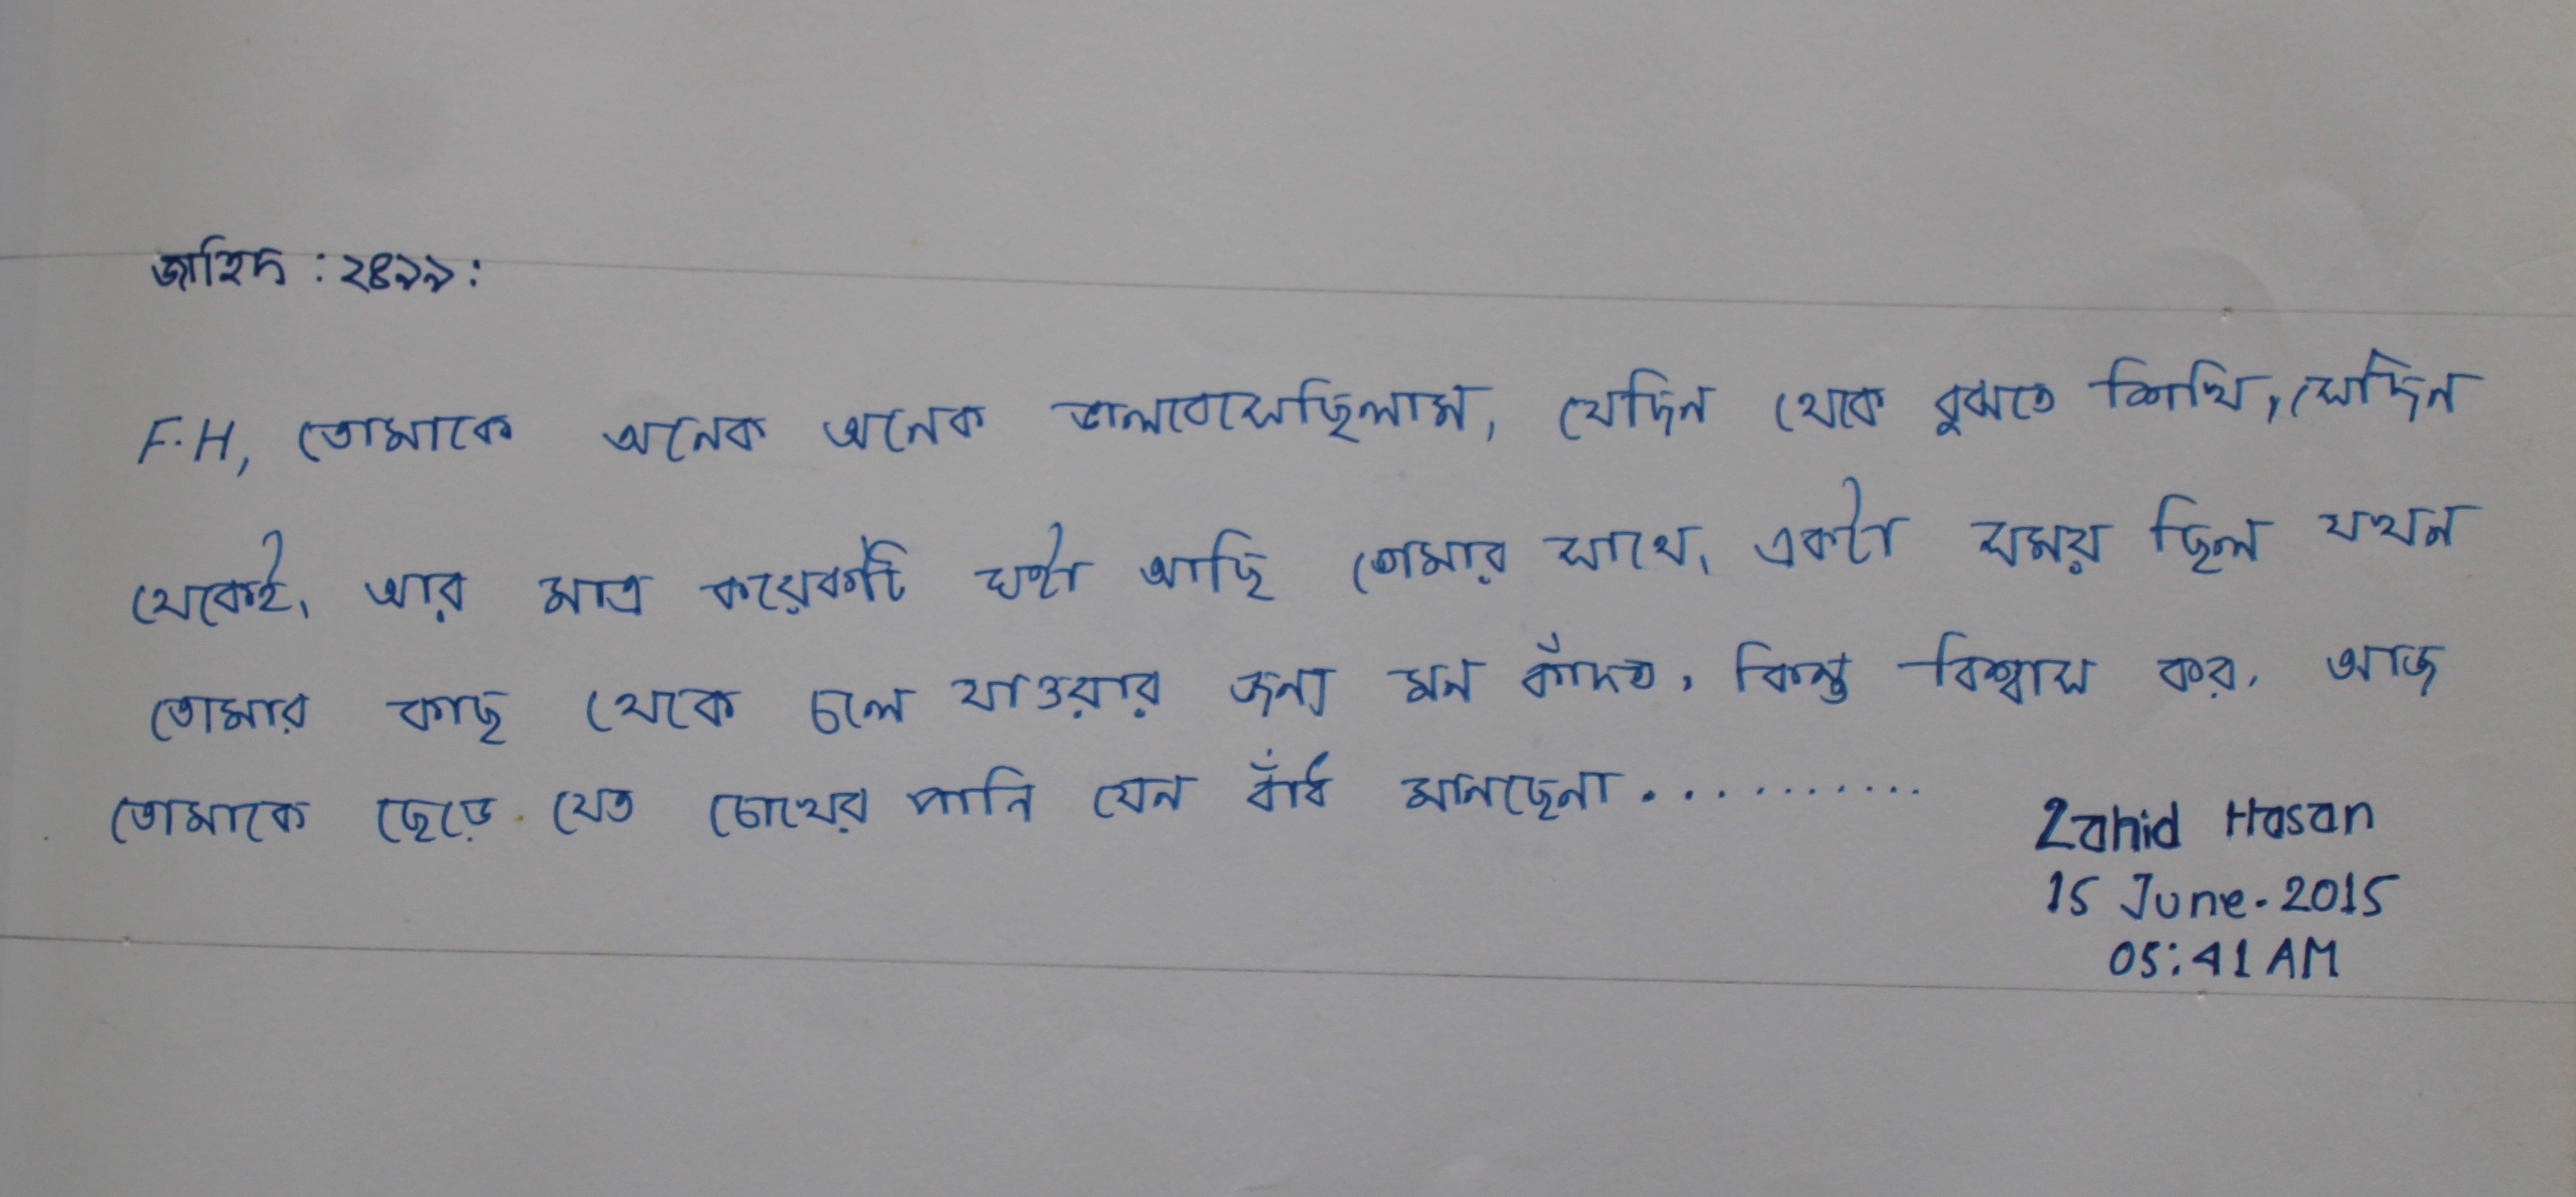 জাহিদ : ২৪৯৯ :
F.H, তোমাকে অনেক অনেক ভালবেসেছিলাম, যেদিন থেকে বুঝতে শিখি, সেদিন
থেকেই, আর মাত্র কয়েকটি ঘন্টা আছি তোমার সাথে, একটা সময় ছিল যখন
তোমার কাছ থেকে চলে যাওয়ার জন্য মন কাঁদত, কিন্তু বিশ্বাস কর, আজ
তোমাকে ছেড়ে যেত চোখের পানি যেন বাঁধ মানছেনা...........
Zahid Hasan
15 June.2015
05:41 AM